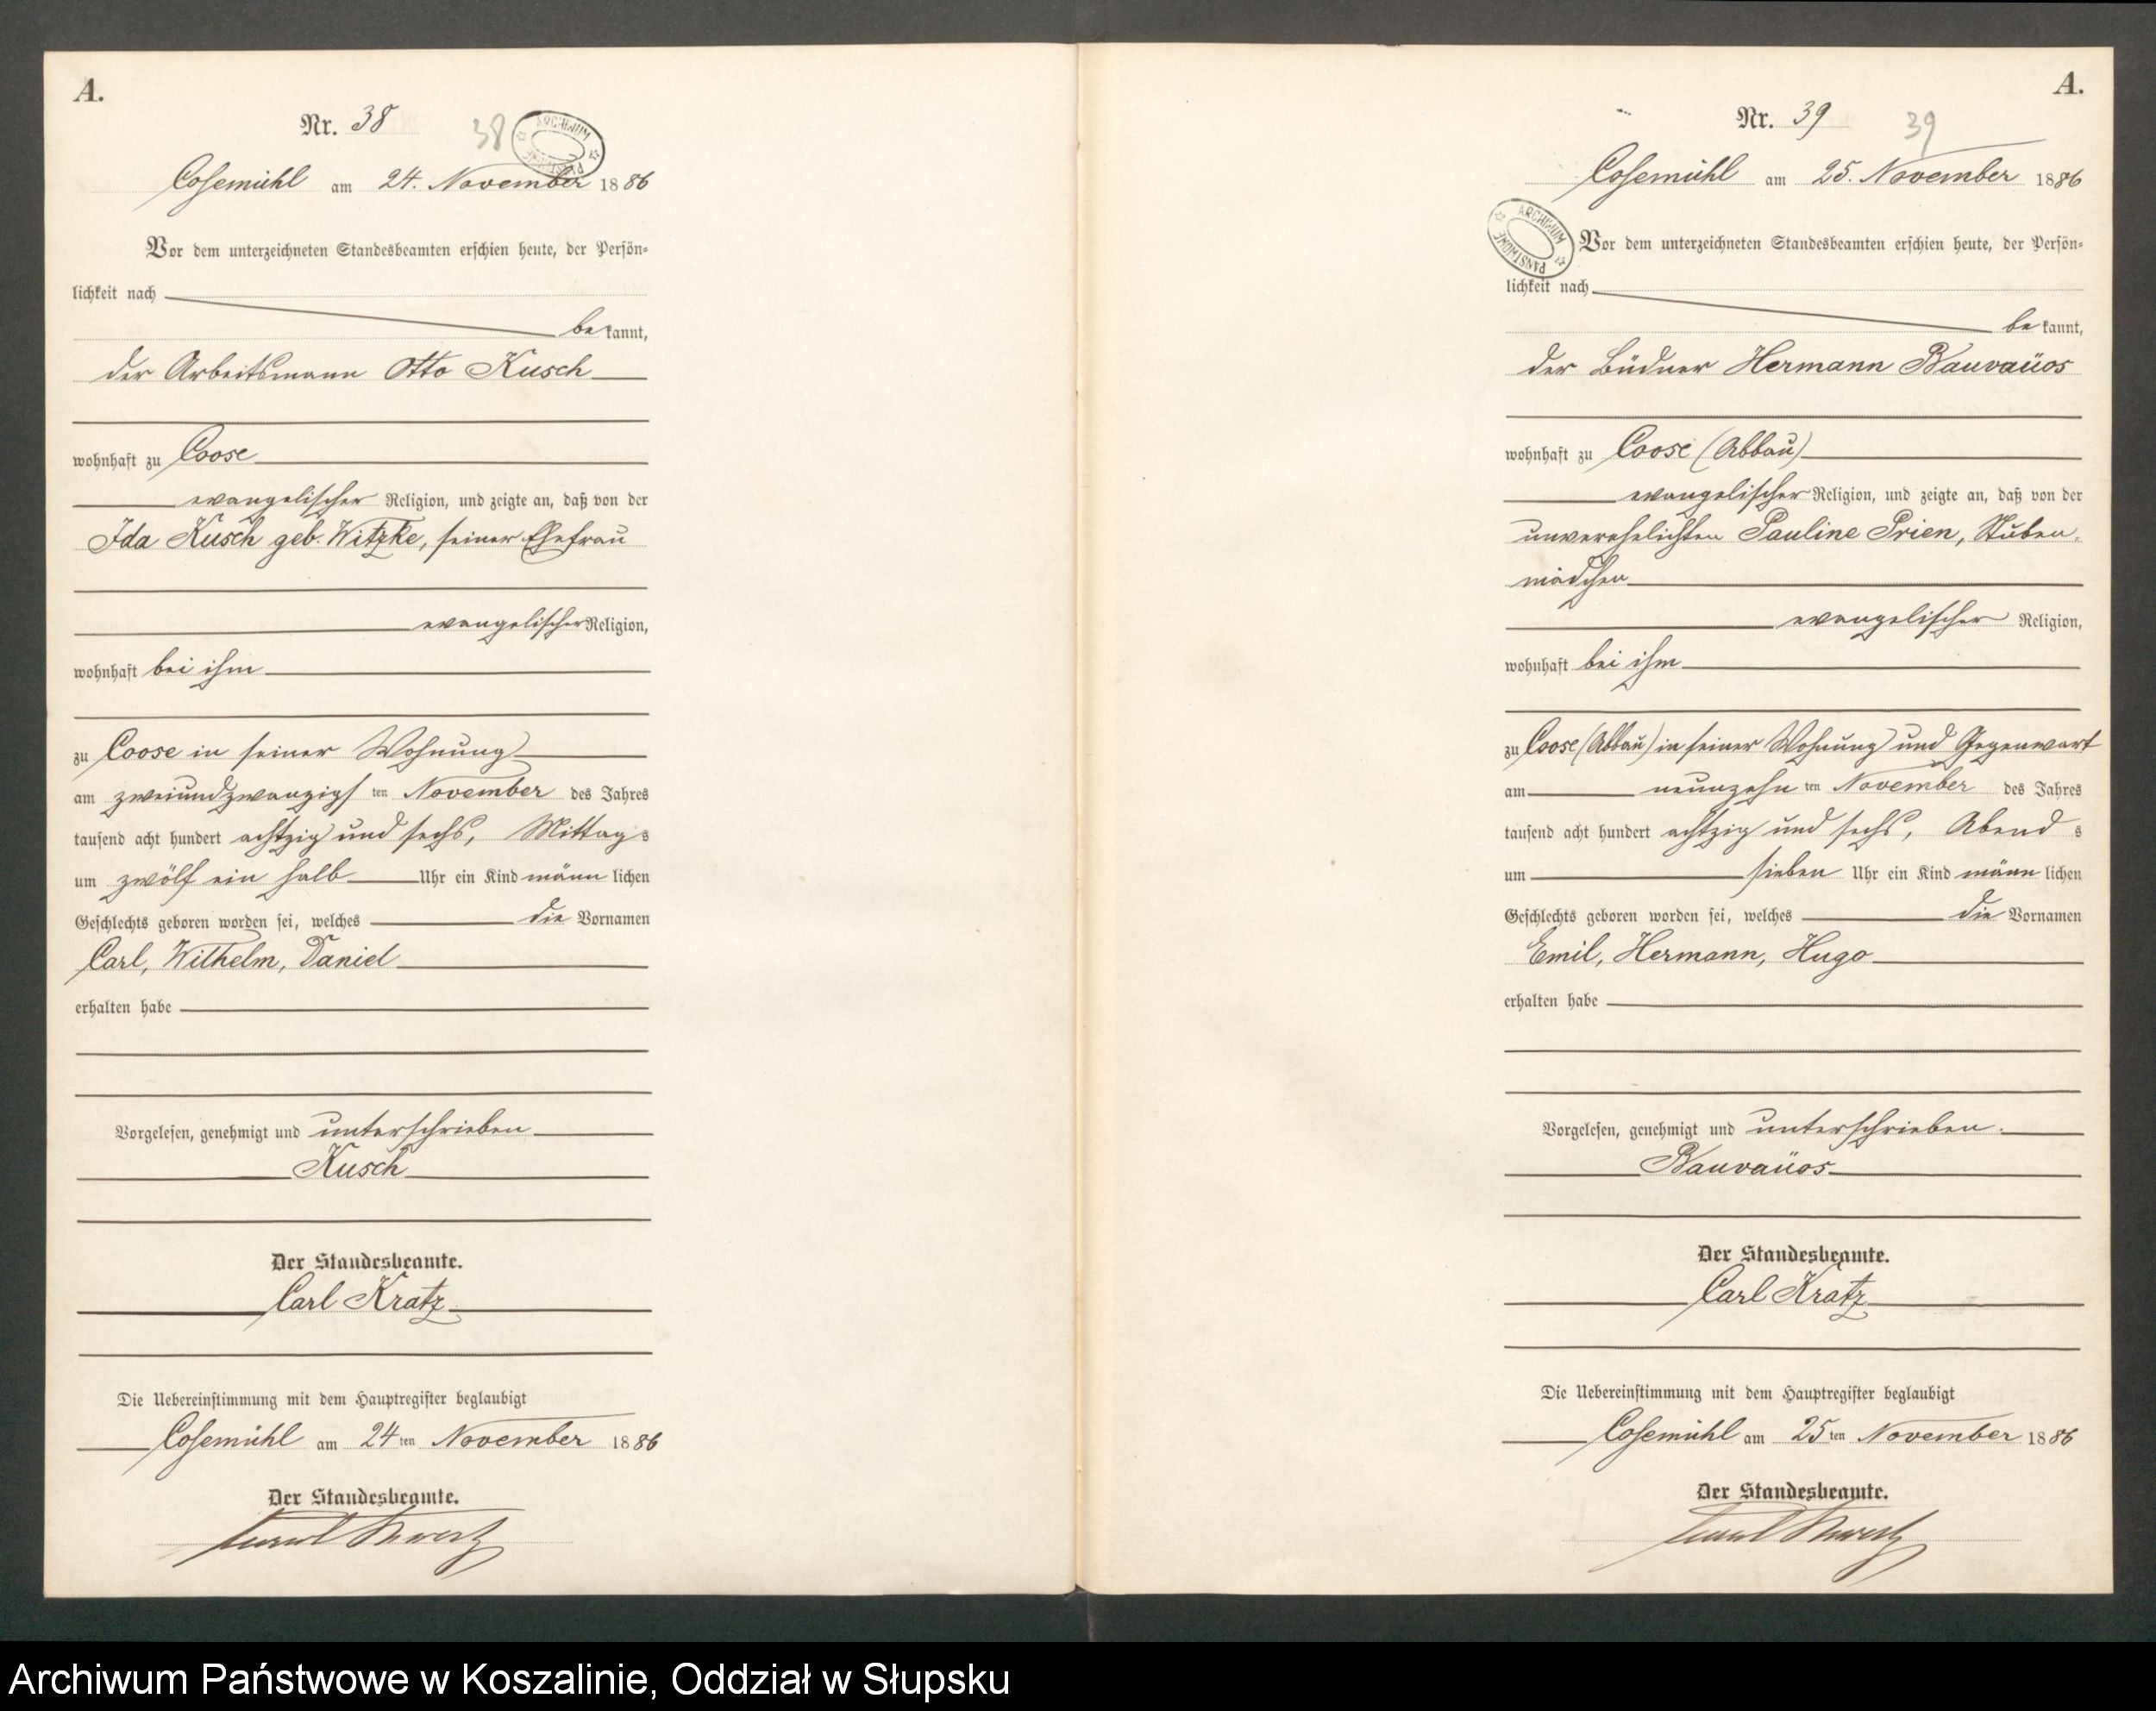 A.
Nr. 38
38
ARCHIWUM PAŃSTWOWE
Cosemühl am 24. November 1886
Vor dem unterzeichneten Standesbeamten erschien heute, der Persön-
lichkeit nach
bekannt,
der Arbeitsmann Otto Kusch
wohnhaft zu Coose
evangelischer Religion, und zeigte an, daß von der
Ida Kusch geb. Witzke, seiner Ehefrau
evangelischer Religion,
wohnhaft bei ihm
zu Coose in seiner Wohnung
am zweiundzwanzigsten November des Jahres
tausend acht hundert achtzig und sechs, Mittags
um zwölf ein halb Uhr ein Kind männlichen
Geschlechts geboren worden sei, welches die Vornamen
Carl, Wilhelm, Daniel
erhalten habe
Vorgelesen, genehmigt und unterschrieben
Kusch
Der Standesbeamte.
Carl Kratz
Die Uebereinstimmung mit dem Hauptregister beglaubigt
Cosemühl am 24ten November 1886
Der Standesbeamte.
A.
Nr. 39
39
Cosemühl am 25. November 1886
ARCHIWUM PAŃSTWOWE
Vor dem unterzeichneten Standesbeamten erschien heute, der Persön-
lichkeit nach
bekannt,
der Büdner Hermann Bauvaüos
wohnhaft zu Coose (Abbau)
evangelischer Religion, und zeigte an, daß von der
unverehelichten Pauline Prien, Stuben-
mädchen
evangelischer Religion,
wohnhaft bei ihm
zu Coose (Abbau) in seiner Wohnung und Gegenwart
am neunzehnten November des Jahres
tausend acht hundert achtzig und sechs, Abends
um sieben Uhr ein Kind männlichen
Geschlechts geboren worden sei, welches die Vornamen
Emil, Hermann, Hugo
erhalten habe
Vorgelesen, genehmigt und unterschrieben.
Bauvaüos
Der Standesbeamte.
Carl Kratz
Die Uebereinstimmung mit dem Hauptregister beglaubigt
Cosemühl am 25ten November 1886
Der Standesbeamte.
Archiwum Państwowe w Koszalinie, Oddział w Słupsku